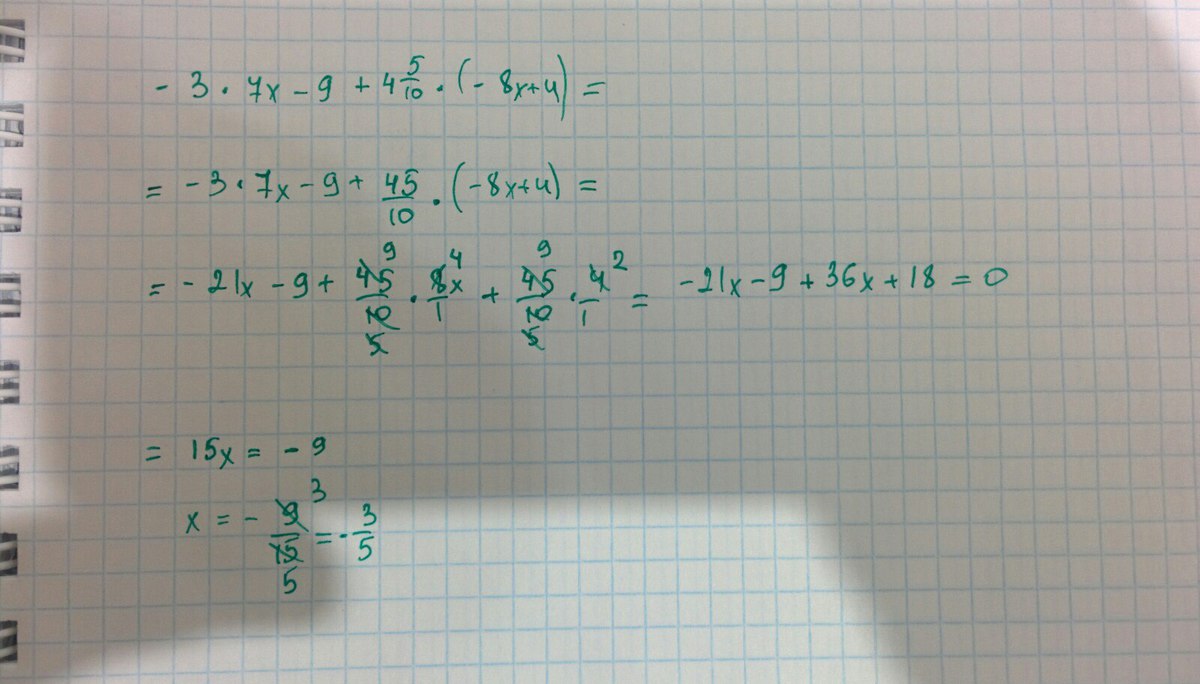 - 3 · 7x - 9 + 4 5/10 · (- 8x+4) =
= - 3 · 7x - 9 + 45/10 · (-8x+4) =
= - 21x - 9 + 45 9/10 5 · 8x 4/1 + 45 9/10 5 · 4 2/1 = -21x - 9 + 36x + 18 = 0
= 15x = - 9
x = - 9 3/15 5 = - 3/5